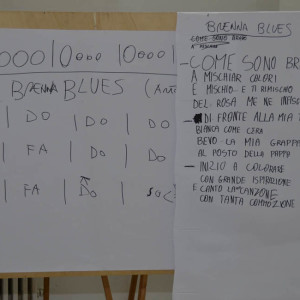 |000|0000|1000
BRENNA BLUES
| DO | DO | DO
| FA | DO | DO
| FA | DO |
BRENNA BLUES
COME SONO
- COME SONO BR
A MISCHIAR COLORI
E MISCHIO E TI RIMISCHIO
DEL ROSA ME NE
DI FRONTE ALLA MIA
BIANCA COME CERA
BEVO LA MIA GRAPPA
AL POSTO DELLA PAPPA
- INIZIO A COLORARE
CON GRANDE ISPIRAZIONE
E CANTO LA CANZONE
CON TANTA COMMOZIONE